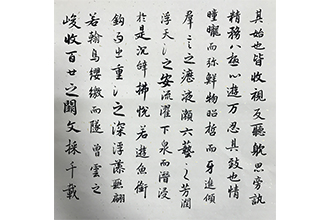 其始也皆收視反聽耽思旁訊
精務八極心遊万忍其致也情
曈曨而弥鮮物昭晢而互進傾
羣言之瀝液漱六藝之芳潤
浮天淵之安流濯下泉而潛浸
於是沉辞怫悦若遊魚銜
鈎而出重淵之深浮藻聯翩
若翰鳥纓繳而墜曾雲之
峻收百世之闕文採千載